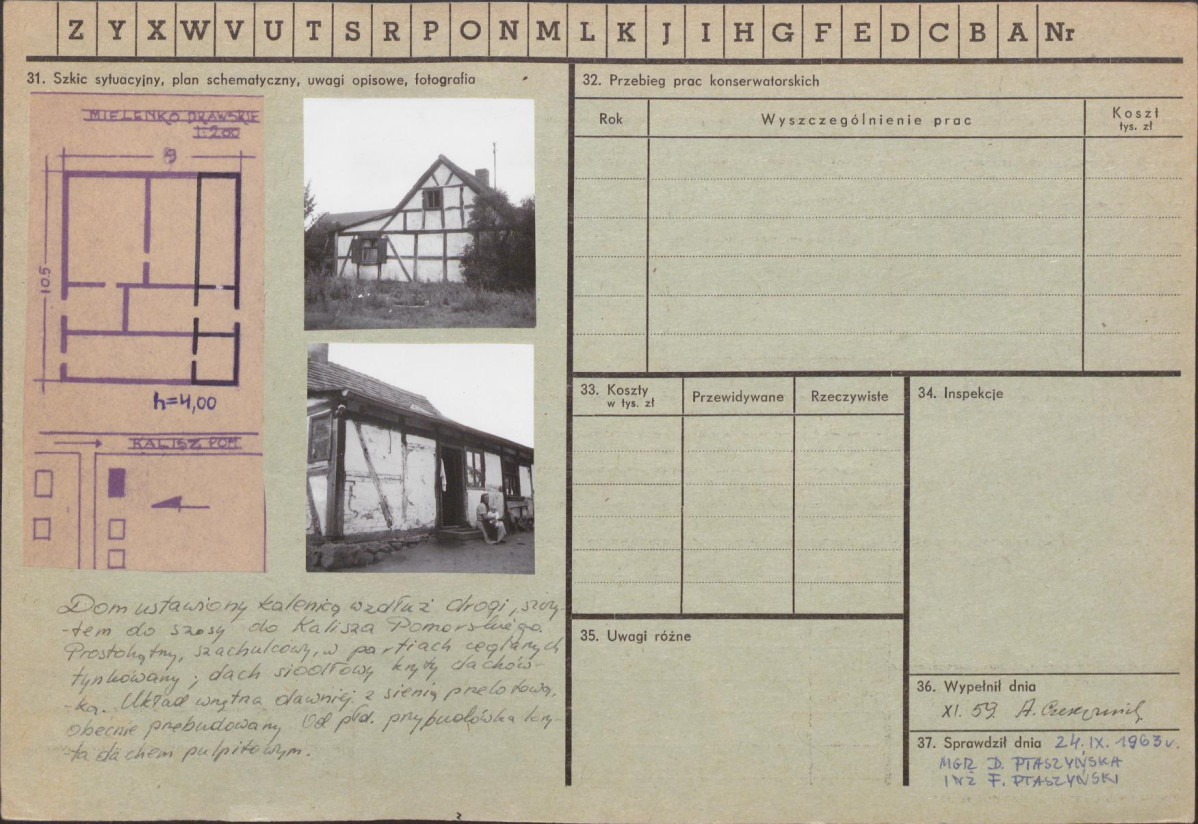 Z Y X W V U T S R P O N M L K J I H G F E D C B A Nr
31. Szkic sytuacyjny, plan schematyczny, uwagi opisowe, fotografia
MIELENKO DRAWSKIE
1:200
9
10.5
h=4,00
KALISZ POM.
Dom ustawiony kalenicą wzdłuż drogi, szczy-
-tem do szosy do Kalisza Pomorskiego.
Prostokątny, szachulcowy, w partiach ceglanych
tynkowany; dach siodłowy kryty dachów-
-ką. Układ wnętrza dawniej z sienią przelotową,
obecnie przebudowany. Od płd. przybudówka kry-
-ta dachem pulpitowym.
32. Przebieg prac konserwatorskich
Rok
Wyszczególnienie prac
Koszt
tys. zł
33. Koszty
w tys. zł
Przewidywane
Rzeczywiste
34. Inspekcje
35. Uwagi różne
36. Wypełnił dnia
XI. 59. A.
37. Sprawdził dnia 24.IX.1963 r.
MGR D. PTASZYŃSKA
INŻ F. PTASZYŃSKI